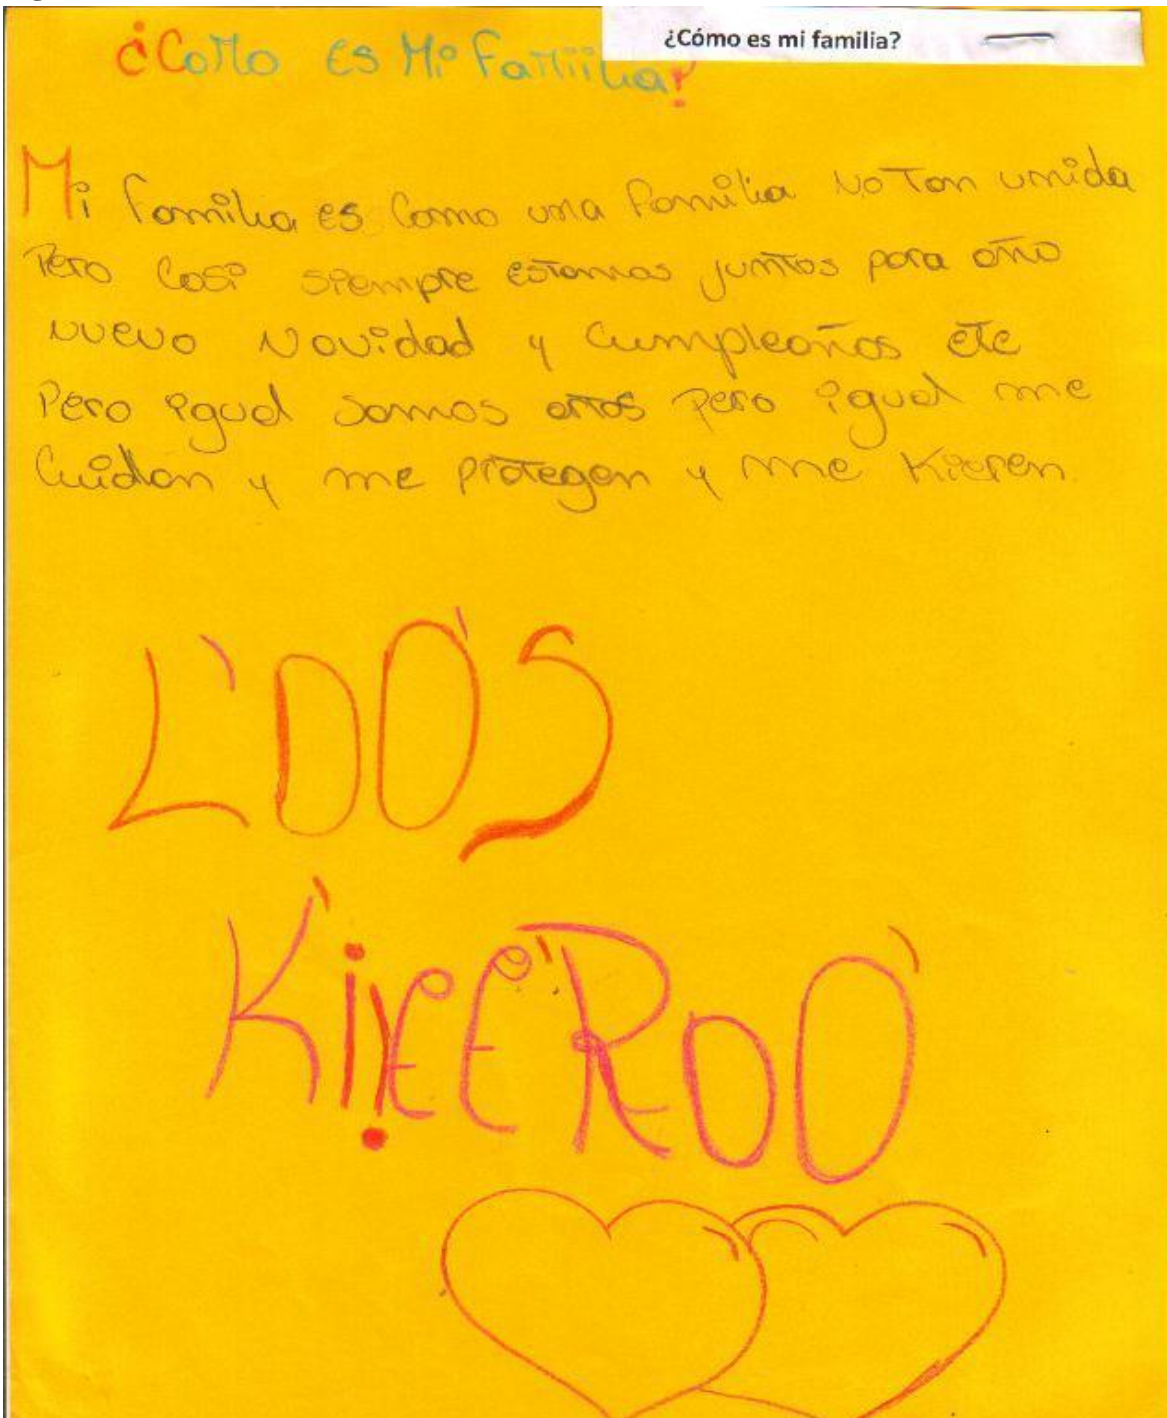 ¿Cómo es mi familia?
¿Como es Mi Familia?
Mi familia es Como una familia No Tan unida
Pero Casi siempre estamos juntos para año
nuevo Navidad y Cumpleaños etc
Pero igual somos pero igual me
Cuidan y me protegen y me Kieren.
L'DO'S
K'iiEE'ROO'